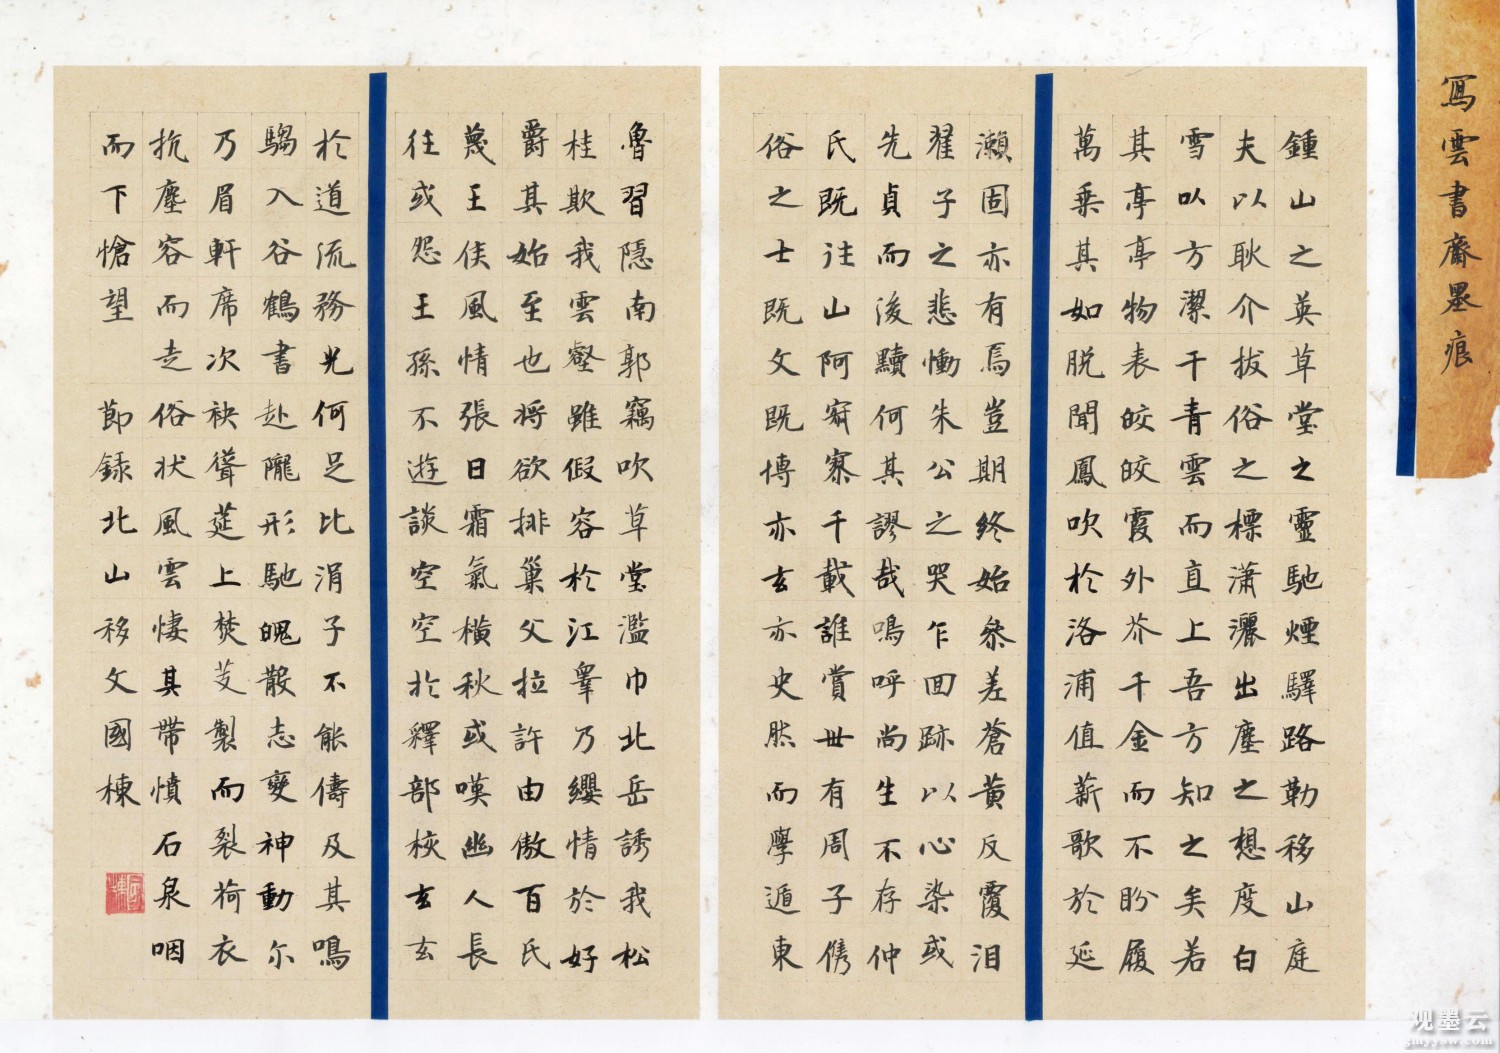 寫雲書齋墨痕
鍾山之英草堂之靈馳煙驛路勒移山庭
夫以耿介拔俗之標瀟灑出塵之想度白
雪以方潔干青雲而直上吾方知之矣若
其亭亭物表皎皎霞外芥千金而不盼履
萬乘其如脫聞鳳吹於洛浦值薪歌於延
瀨固亦有焉豈期終始參差蒼黃反覆泪
翟子之悲慟朱公之哭乍回跡以心染或
先貞而後黷何其謬哉鳴呼尚生不存仲
氏既往山阿寂寥千載誰賞世有周子儁
俗之士既文既博亦玄亦史然而學遁東
魯習隱南郭竊吹草堂濫巾北岳誘我松
桂欺我雲壑雖假容於江皋乃纓情於好
爵其始至也將欲排巢父拉許由傲百氏
蔑王侯風情張日霜氣橫秋或嘆幽人長
往或怨王孫不遊談空空於釋部核玄玄
於道流務光何足比涓子不能儔及其鳴
騶入谷鶴書赴隴形馳魄散志變神動尔
乃眉軒席次袂聳筵上焚芰製而裂荷衣
抗塵容而走俗狀風雲悽其帶憤石泉咽
而下愴望 節錄北山移文國棟
观墨云